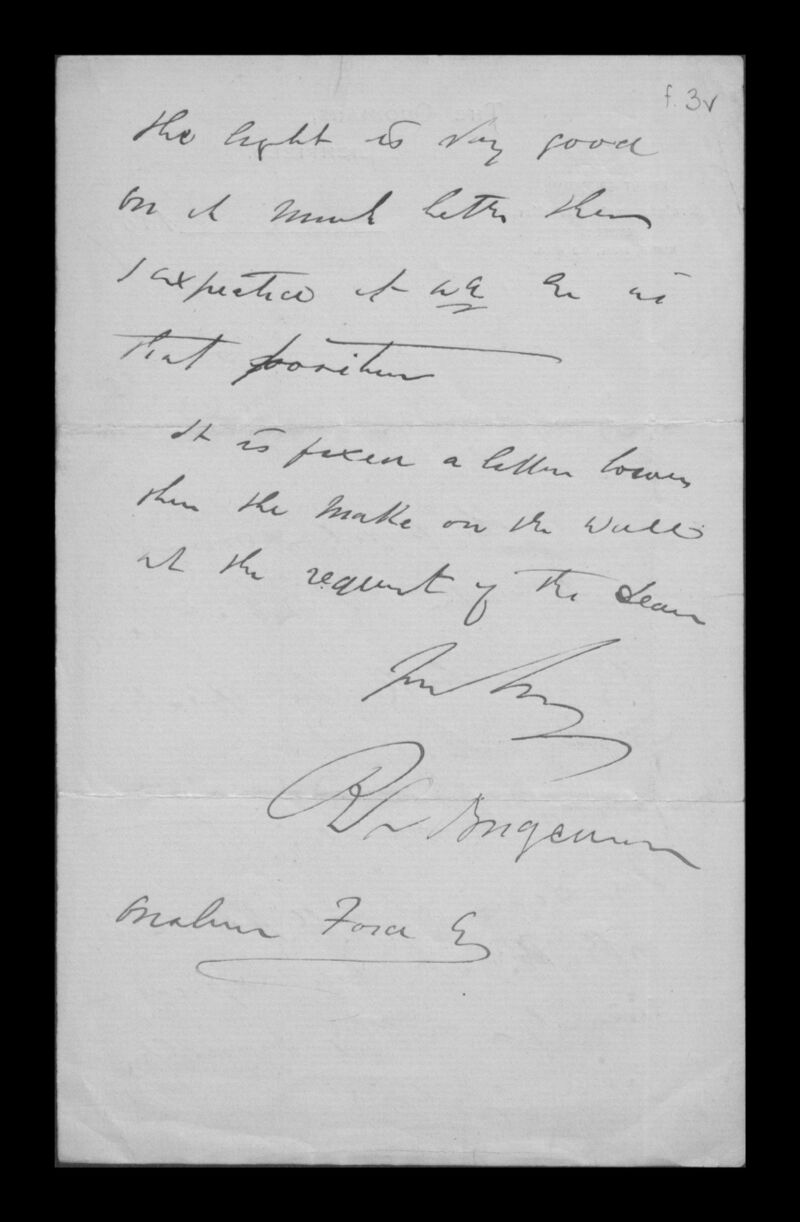 f. 3v
the light is very good
on it much better then
I expected it wd be in
that position
It is fixed a little lower
then the make on the wall
at the request of the Dean
R Bridgeman
Onslow Ford Esq